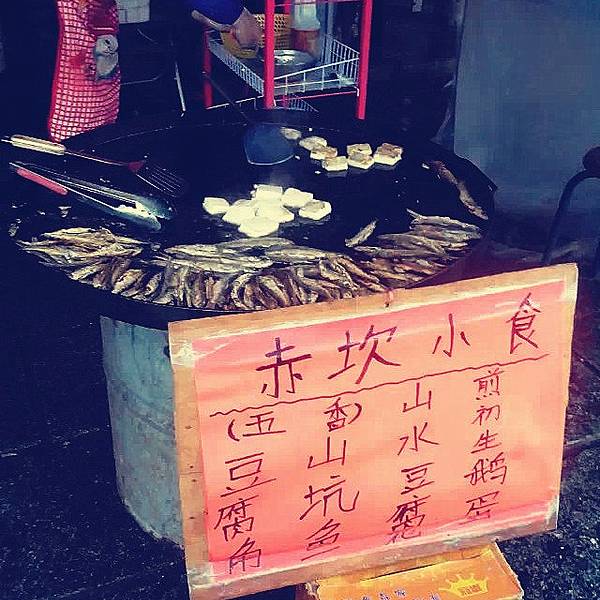 赤坎小食
(五香)
豆腐角
山坑鱼
山水豆腐花
煎初生鹅蛋